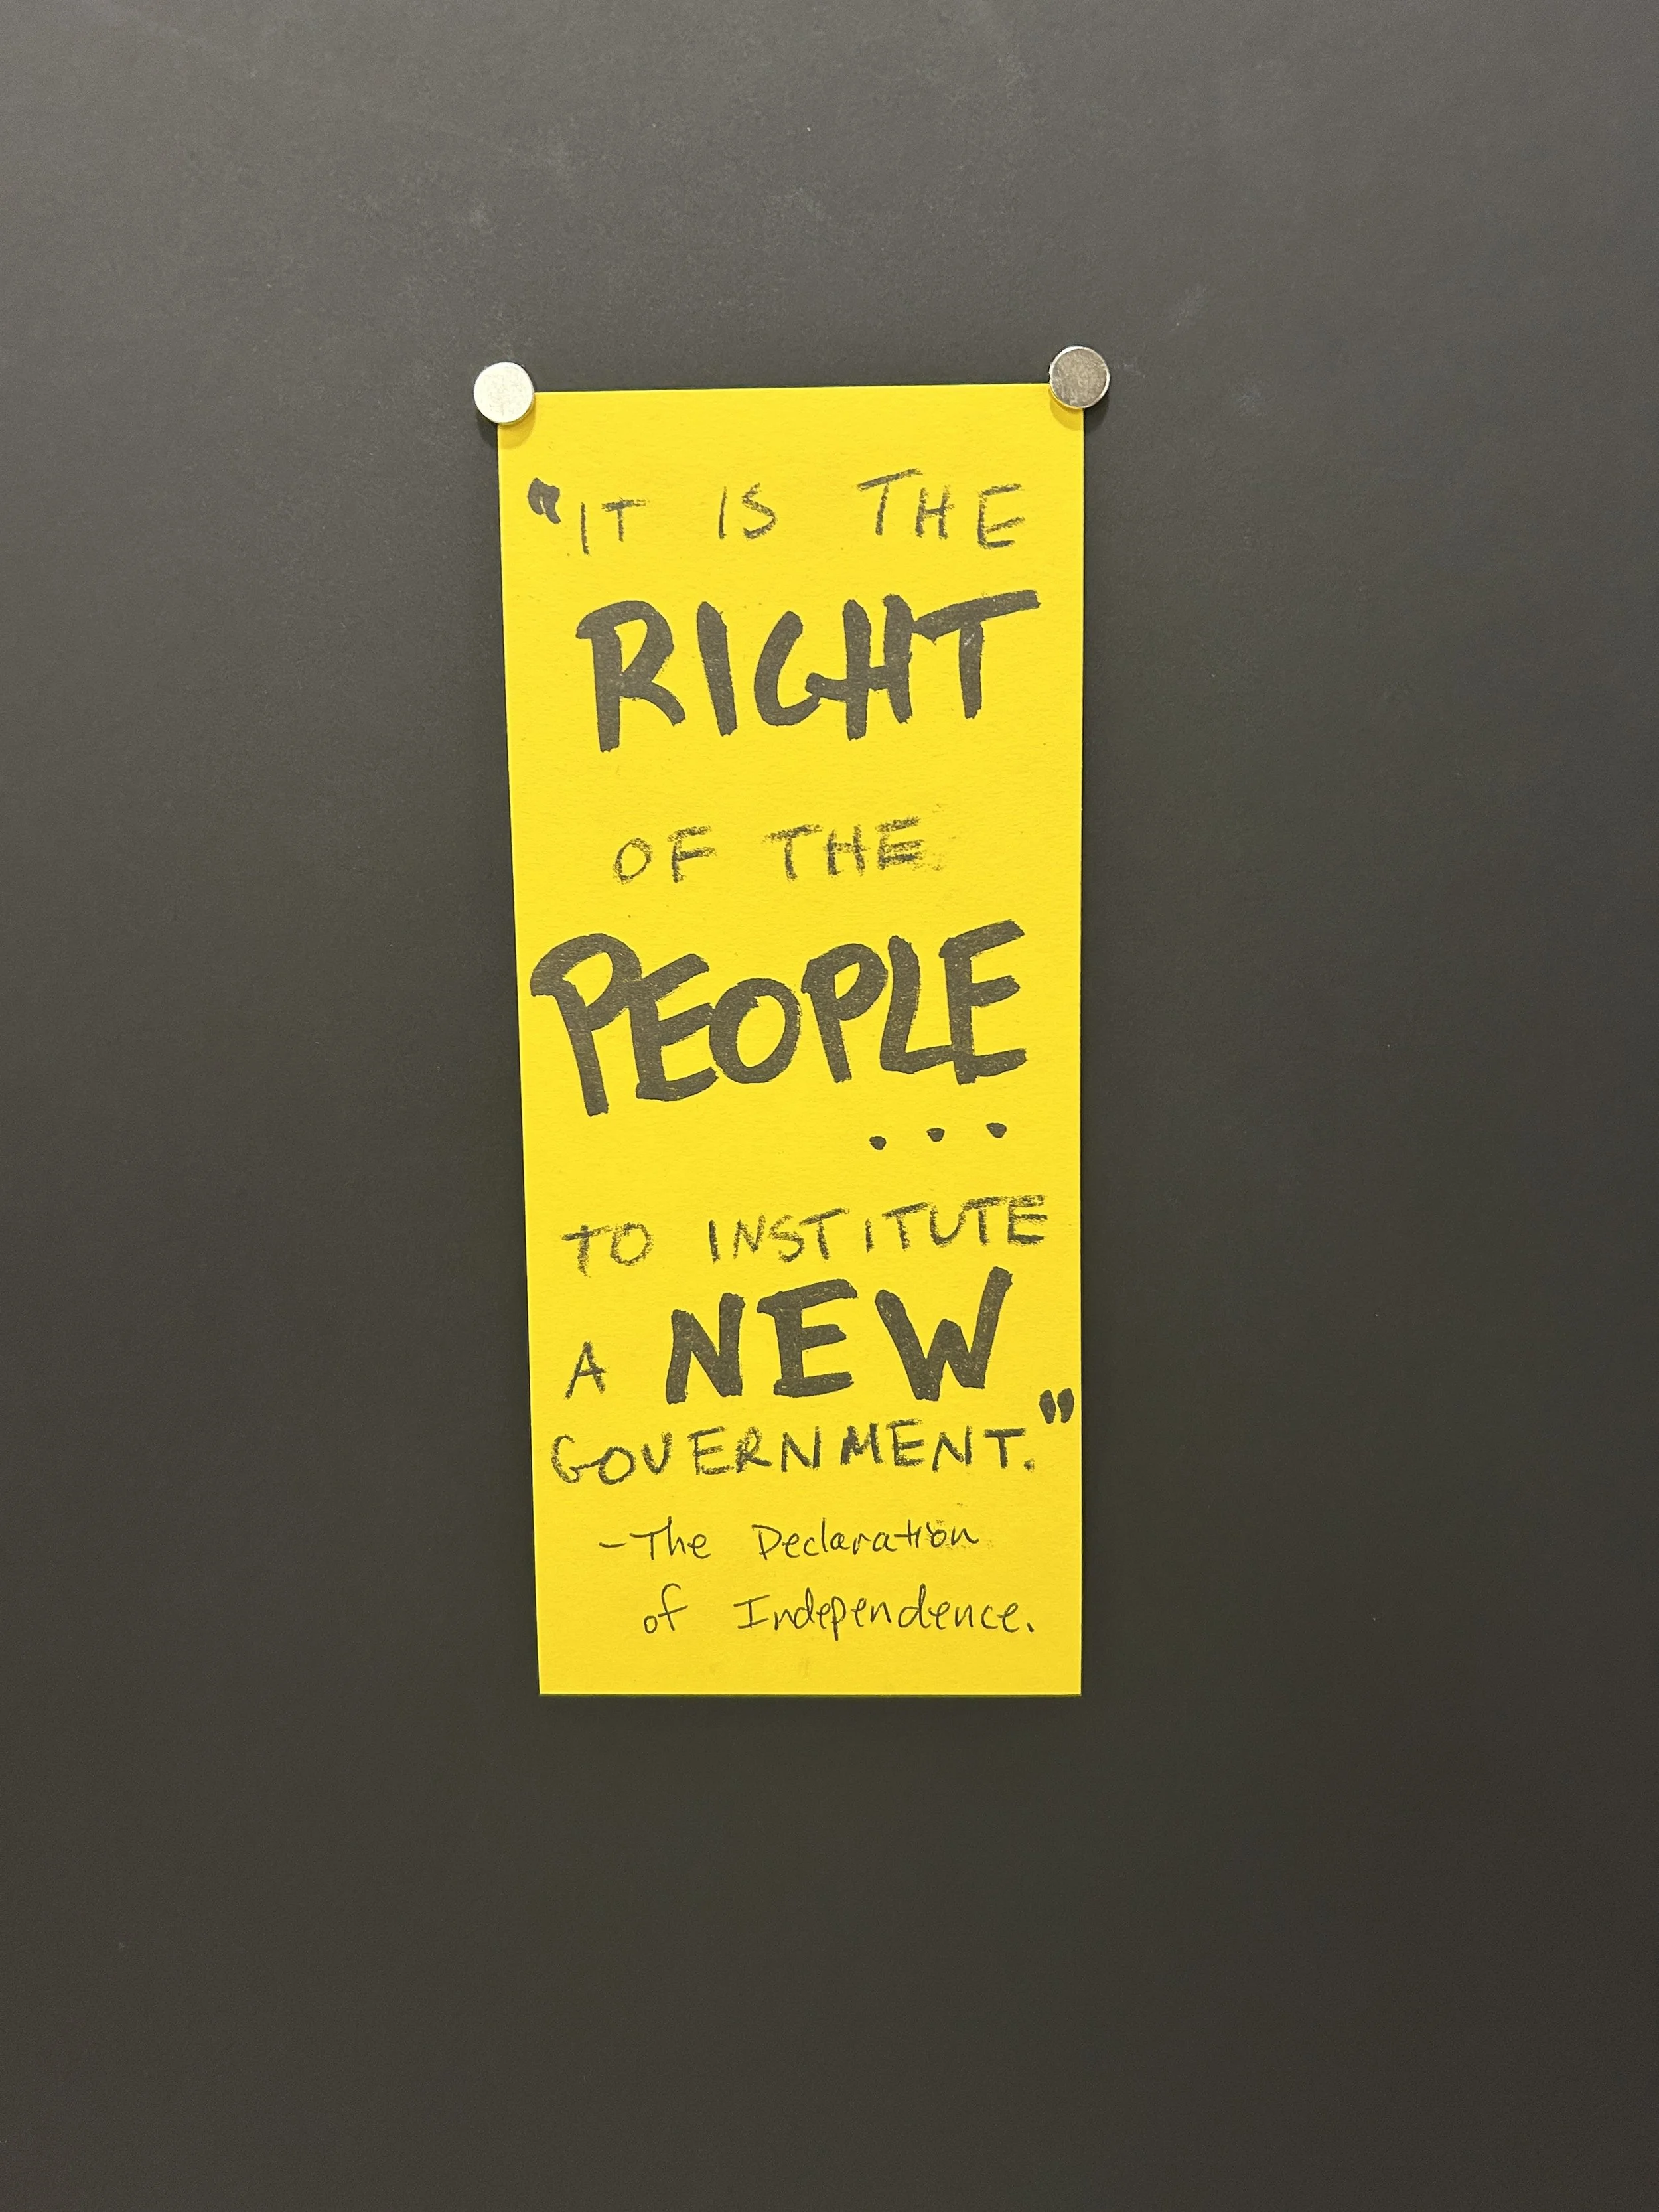 "IT IS THE
RIGHT
OF THE
PEOPLE
...
TO INSTITUTE
A NEW
GOVERNMENT."
-The Declaration
of Independence.